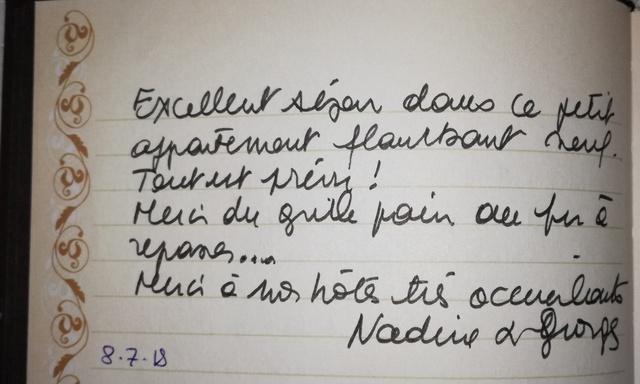 Excellent séjour dans ce petit
appartement flambant neuf.
Tout est prévu !
Merci du grille pain au fer à
repasser...
Merci à nos hôtes très accueillants
Nadine & Georges
8.7.18